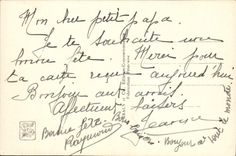 Mon cher petit papa.
Je te souhaite une
bonne fête. Merci pour
ta carte reçue aujourd'hui
Bonjour aux
Affectueux baisers
Bonne Fête
Raymond
Bonjour à tout le monde